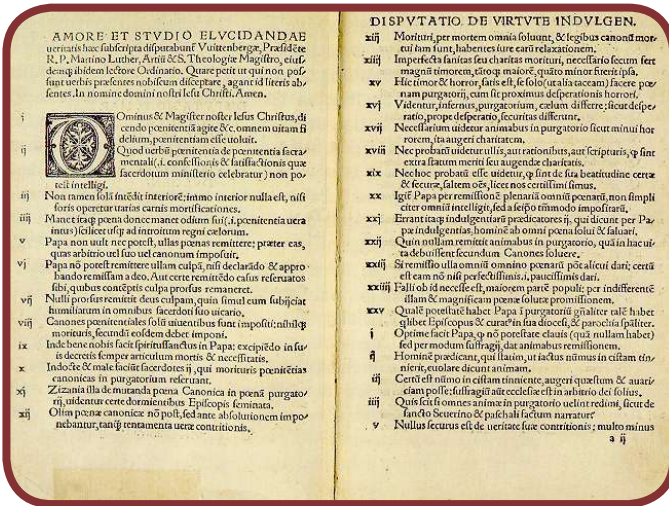 AMORE ET STVDIO ELVCIDANDAE
ueritatis hæc subscripta disputabunť Vuittenbergæ, Præsidēte
R. P. Martino Luther, Artiū & S. Theologiæ Magistro, eius-
demq; ibidem lectore Ordinatio. Quare petit ut qui non pos-
sunt uerbis præsentes nobiscum disceptare, agant id literis ab-
sentes. In nomine domini nostri Iesu Christi. Amen.
i Ominus & Magister noster Iesus Christus, di
cendo pœnitentiā agite &c. omnem uitam fi
delium, pœnitentiam esse uoluit.
ij Quod uerbū pœnitentia de pœnitentia sacra
mentali (.i. confessiōis & satisfactionis quæ
sacerdotum ministerio celebratur) non po-
test intelligi.
iij Non tamen solā intēdit interiorē; immo interior nulla est, nisi
foris operetur uarias carnis mortificationes.
iiij Manet itaq; pœna donec manet odium sui (.i. pœnitentia uera
intus) scilicet usq; ad introitum regni cælorum.
v Papa non uult nec potest, ullas pœnas remittere; præter eas,
quas arbitrio uel suo uel canonum imposuit.
vj Papa nō potest remittere ullam culpā, nisi declarādo & appro
bando remissam a deo. Aut certe remittēdo casus reseruatos
sibi, quibus contēptis culpa prorsus remaneret.
vij Nulli prorsus remittit deus culpam, quin simul eum subijciat
humiliatum in omnibus sacerdoti suo uicario.
viij Canones pœnitentiales solū uiuentibus sunt impositi; nihilq;
morituris, secundū eosdem debet imponi.
ix Inde bene nobis facit spiritussanctus in Papa; excipiēdo in su-
is decretis semper articulum mortis & necessitatis.
x Indocte & male faciūt sacerdotes ij, qui morituris pœnitētias
canonicas in purgatorium reseruant.
xj Zizania illa de mutanda pœna Canonica in pœnā purgato-
rij, uidentur certe dormientibus Episcopis seminata.
xij Olim pœnæ canonicæ nō post, sed ante absolutionem impo
nebantur, tanq̄ tentamenta ueræ contritionis.
DISPVTATIO DE VIRTVTE INDVLGEN.
xiij Morituri, per mortem omnia soluunt, & legibus canonū mor-
tui iam sunt, habentes iure earū relaxationem.
xiiij Imperfecta sanitas seu charitas morituri, necessario secum fert
magnū timorem, tātoq; maiorē, quāto minor fuerit ipsa.
xv Hic timor & horror, satis est, se solo (ut alia taceam) facere pœ-
nam purgatorij, cum sit proximus desperationis horrori.
xvj Videntur, infernus, purgatorium, cælum differre; sicut despe-
ratio, prope desperatio, securitas differunt.
xvij Necessarium uidetur animabus in purgatorio sicut minui hor
rorem, ita augeri charitatem.
xviij Nec probatū uidetur ullis, aut rationibus, aut scripturis, q̄ sint
extra statum meriti seu augendæ charitatis.
xix Nec hoc probatū esse uidetur, q̄ sint de sua beatitudine certæ
& securæ, saltem oēs, licet nos certissimi simus.
xx Igiť Papa per remissionē plenariā omniū pœnarū, non simpli
citer omniū intelligit, sed a seipso tm̄modo impositarū.
xxj Errant itaq; indulgentiarū prædicatores ij, qui dicunt per Pa-
pæ indulgentias, hominē ab omni pœna solui & saluari.
xxij Quin nullam remittit animabus in purgatorio, quā in hac ui-
ta debuissent secundum Canones soluere.
xxiij Si remissio ulla omniū omnino pœnarū pōt alicui dari; certū
est eam nō nisi perfectissimis, .i. paucissimis dari.
xxiiij Falli ob id necesse est, maiorem partē populi; per indifferentē
illam & magnificam pœnæ solutæ promissionem.
xxv Qualē potestatē habet Papa ī purgatoriū gn̄aliter talē habet
q̄libet Episcopus & curať in sua diocesi, & parochia sp̄aliter.
i Optime facit Papa, q̄ nō potestate clauis (quā nullam habet)
sed per modum suffragij, dat animabus remissionem.
ij Hominē prædicant, qui statim, ut iactus nūmus in cistam tin-
nierit, euolare dicunt animam.
iij Certū est nūmo in cistam tinniente, augeri quæstum & auari-
ciam posse; suffragiū aūt ecclesiæ est in arbitrio dei solius.
iiij Quis scit si omnes animæ in purgatorio uelint redimi, sicut de
sancto Seuerino & paschali factum narratur.
v Nullus securus est de ueritate suæ contritionis; multo minus
a ij